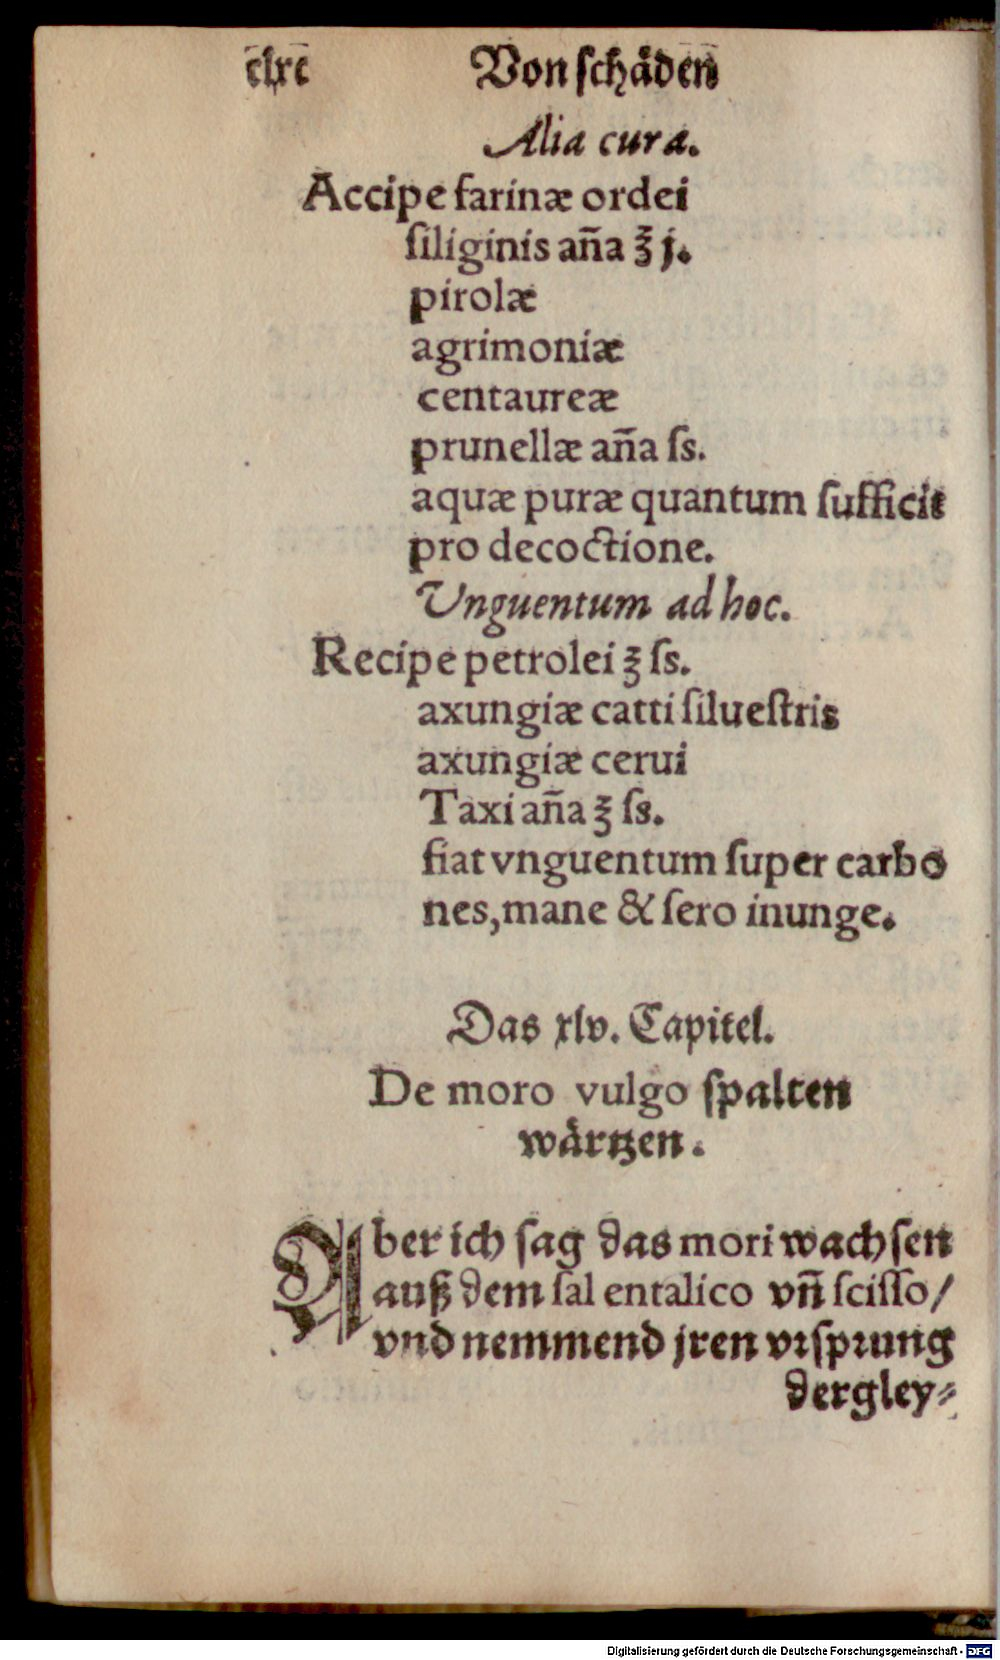 clxc Von schäden
Alia cura.
Accipe farinæ ordei
ſiliginis an̄a ℥ j.
pirolæ
agrimoniæ
centaureæ
prunellæ an̄a ſs.
aquæ puræ quantum ſufficit
pro decoctione.
Vnguentum ad hoc.
Recipe petrolei ℥ ſs.
axungiæ catti ſilueſtris
axungiæ cerui
Taxi an̄a ℥ ſs.
fiat vnguentum ſuper carbo
nes, mane & ſero inunge.
Das xlv. Capitel.
De moro vulgo ſpalten
wärtzen.
Aber ich ſag das mori wachſen
auß dem ſal entalico vn̄ ſciſſo/
vnd nemmend jren vrſprung
dergley⸗
Digitalisierung gefördert durch die Deutsche Forschungsgemeinschaft - DFG